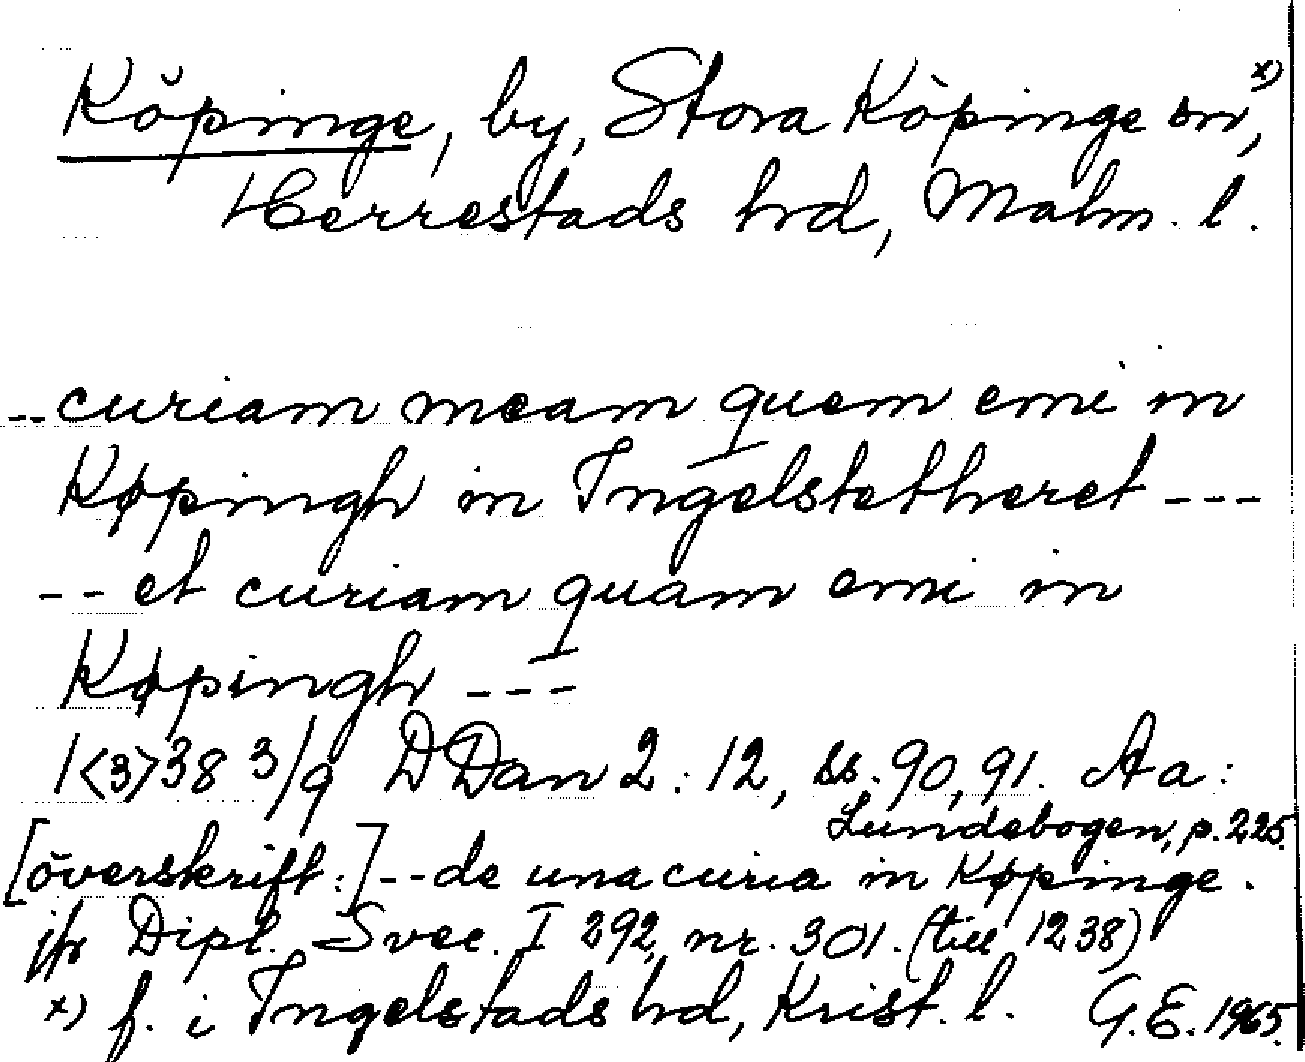 Köpinge, by, Stora Köpinge sn, x)
Herrestads hd, Malm. l.
-- curiam meam quem emi in
Køpingh in Ingelstetheret ---
-- et curiam quam emi in
Køpingh ---
1<3>38 3/9 DDan 2:12, ss. 90, 91. Aa:
Lundebogen, p. 225.
[överskrift:] -- de una curia in Køpinge.
jfr Dipl. Svec. I 292, nr. 301. (till 1238)
x) f. i Ingelstads hd, Krist. l. G.E. 1965.